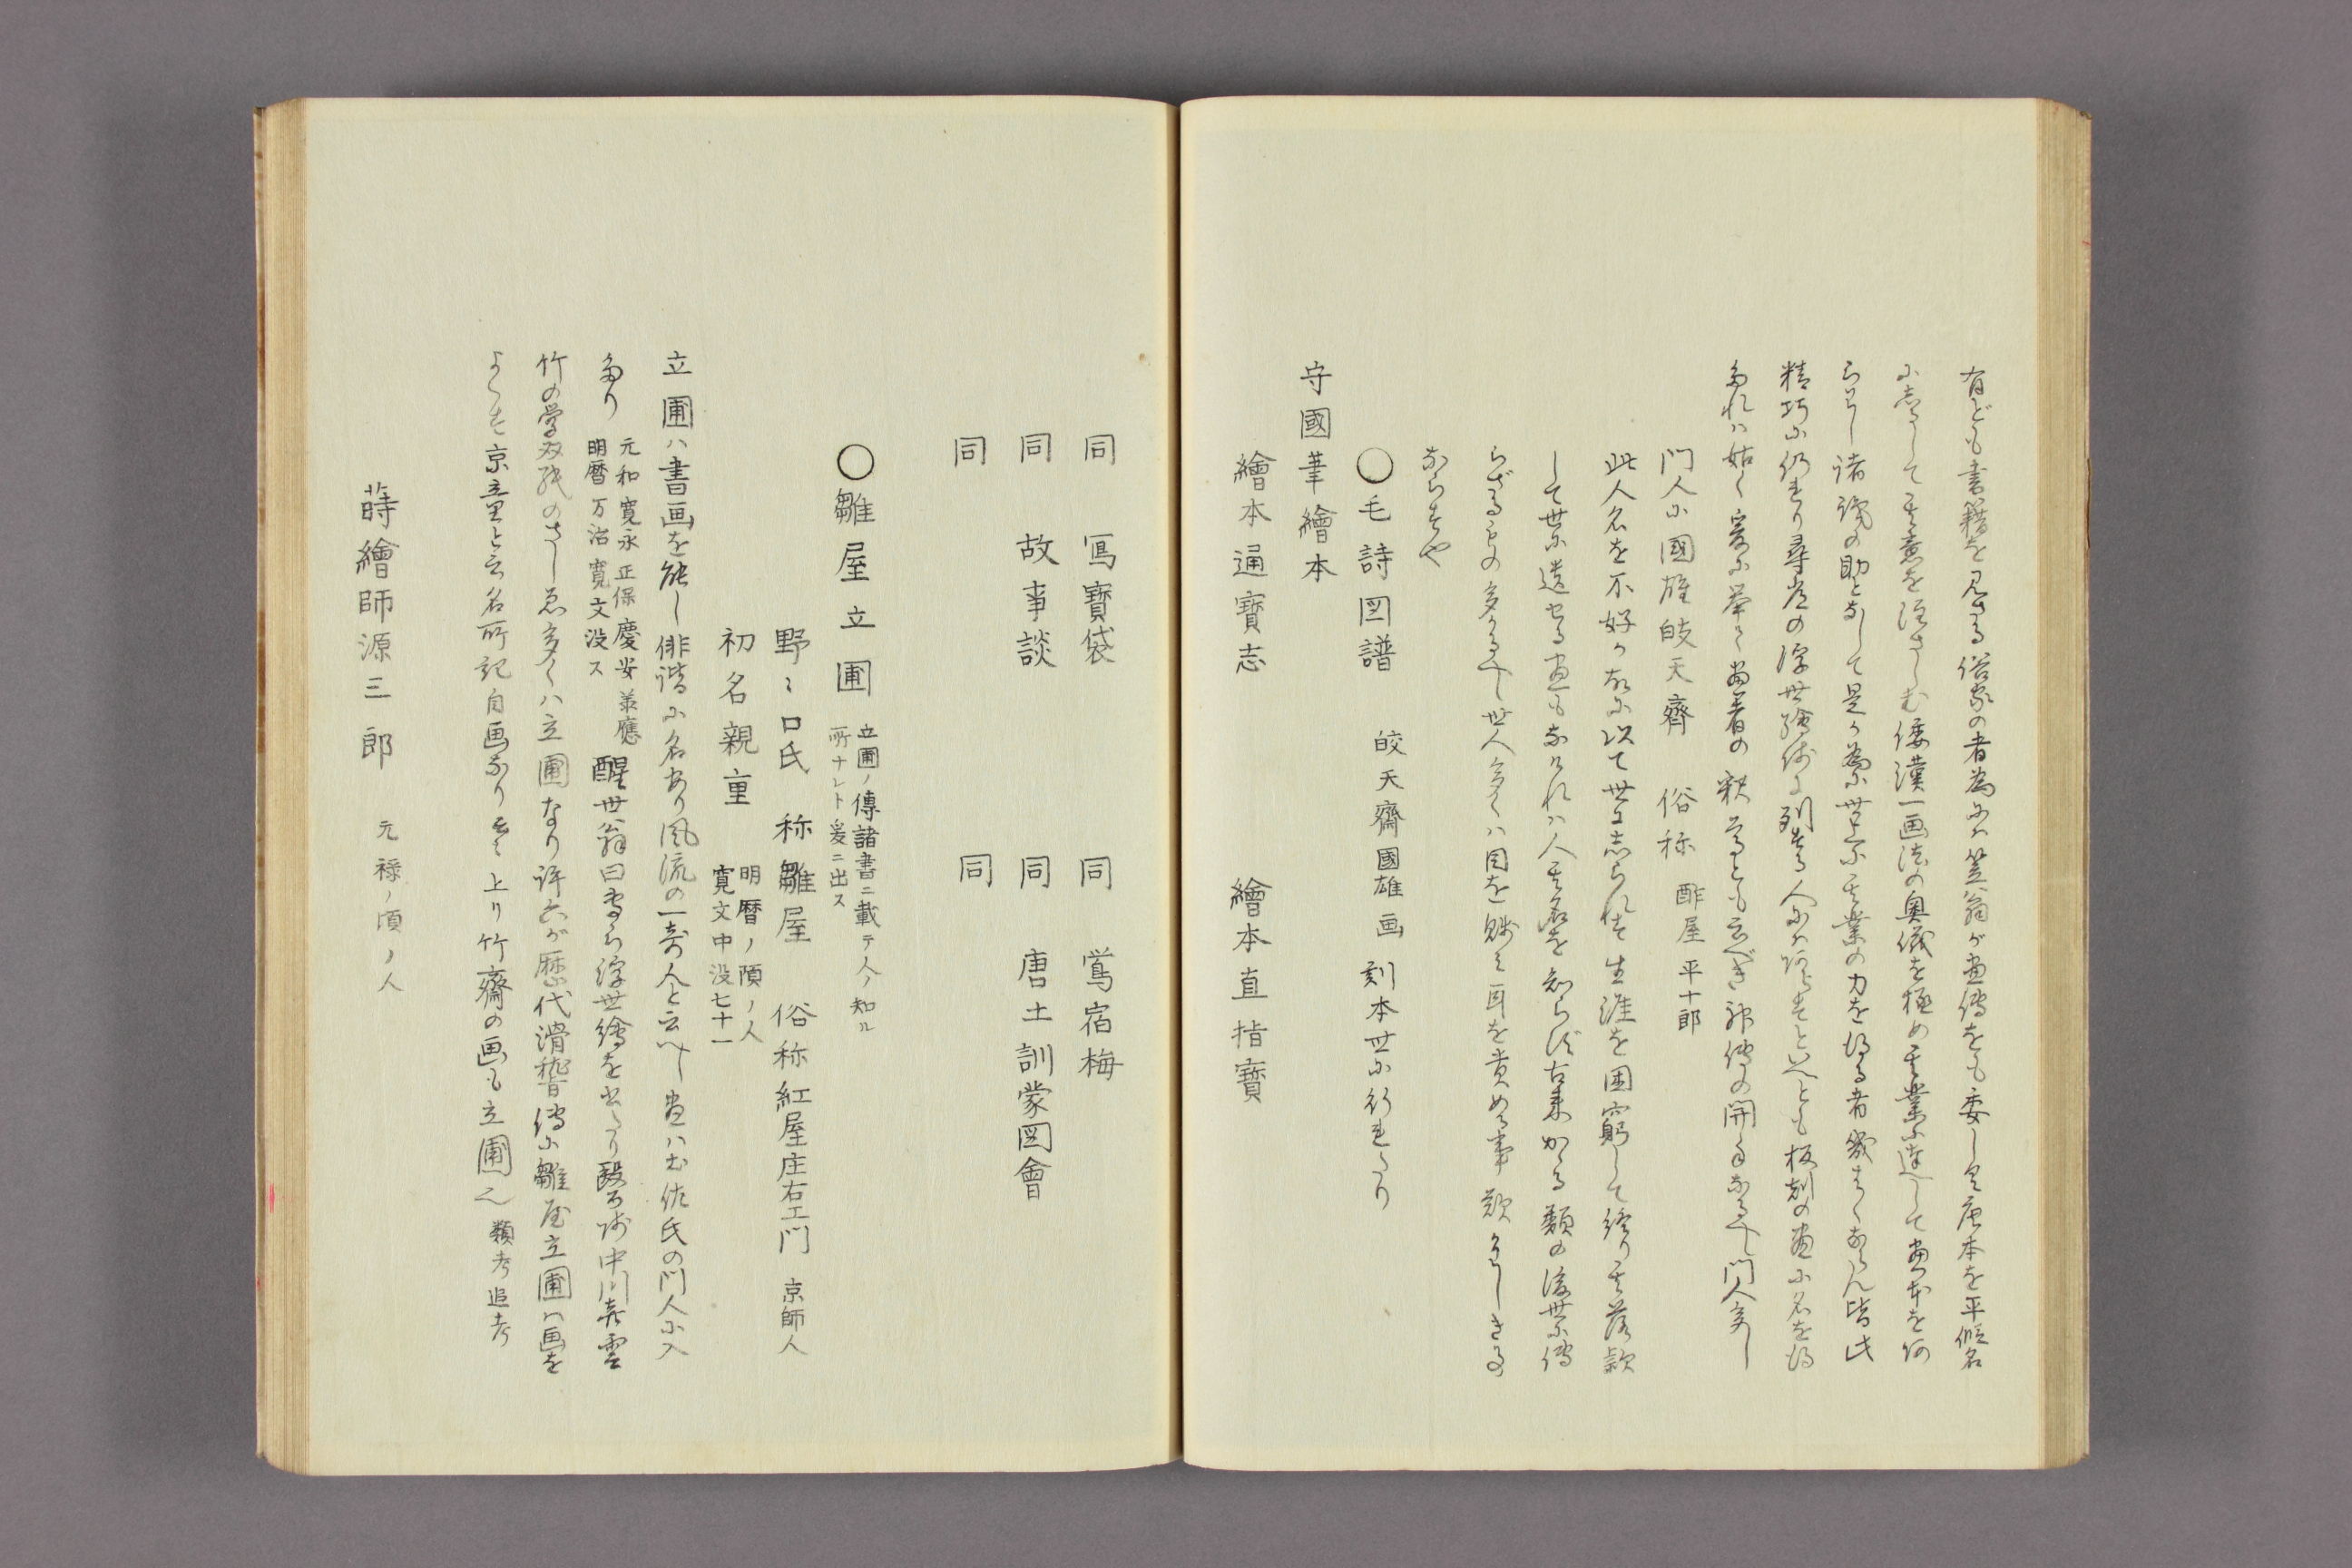 有ども書籍を見ざる俗家の者為には笠翁が画傳をも委しく唐本を平假名
にしるして其意を注さしむ倭漢一画法の奥儀を極め其業に達して画本を
らはし諸職の助となして是が為に世上に其業の力を得る者
精巧に仍たり尋常の浮世繪師に列する人には あらずといへども板刻の画に名を得
たれは姑く爰に挙く画者の釈 ともいふべき 傳の開手なるべし門人多し
門人に國雄皎天齊 俗称 酢屋平十郎
此人名を不好が故に以て世に志られず生涯を困窮して終り其落款
して世に遺せる画もなければ人其名を知らず古来かゝる類の後世に傳
らざるもの多かるべし世人多くは目を賤み耳を貴める事歎かはしき事
ならずや
〇毛詩図譜 皎天齋國雄画 刻本世に行れたり
守國筆繪本
繪本通寳志 繪本直指寳
同 冩寳袋 同 鴬宿梅
同 故事談 同 唐土訓蒙図會
同 同
〇雛屋立圃 立圃ノ傳諸書ニ載テ人ノ知ル
所ナレト爰ニ出ス
野々口氏 称雛屋 俗称紅屋庄右エ門 京師人
初名親重 明暦ノ頃ノ人
寛文中没七十一
立圃ハ書画を能し俳諧に名あり風流の一奇人と云べし画ハ土佐氏の門人に入
たり 元和 寛永 正保 慶安 兼應
明暦 万治 寛文没ス 醒世翁曰専ら浮世繪を出たり 中川喜雲
竹の学 のさし画多くハ立圃なり許六が歴代滑稽傳に雛屋立圃ハ画を
よくす京童と云名所記自画なり 上り竹齋の画も立圃也 類考追考
蒔繪師源三郎 元禄ノ頃ノ人